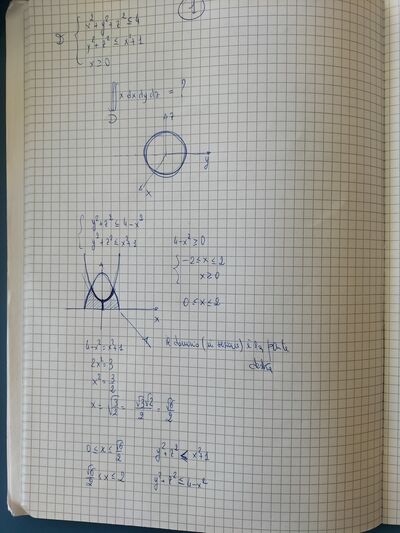 1
D { x²+y²+z² ≤ 4
y²+z² ≤ x²+1
x ≥ 0
∭_D x dx dy dz = ?
z
y
x
{ y²+z² ≤ 4-x²
y²+z² ≤ x²+1
4-x² ≥ 0
{ -2 ≤ x ≤ 2
x ≥ 0
0 ≤ x ≤ 2
x
Il dominio (in sezione) è la parte
4-x² = x²+1
2x² = 3
x² = 3/2
x = √(3/2) = √3√2/2 = √6/2
0 ≤ x ≤ √6/2 y²+z² ≤ x²+1
√6/2 ≤ x ≤ 2 y²+z² ≤ 4-x²